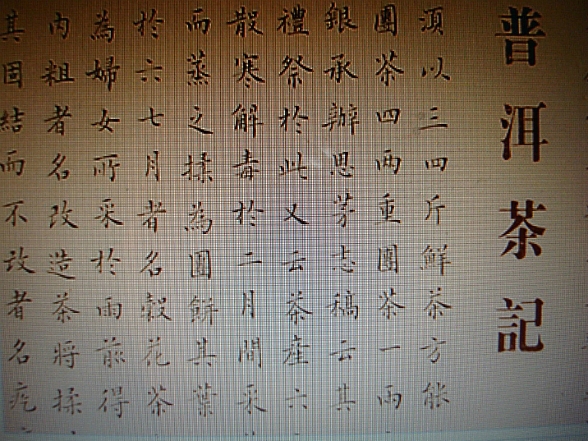 普洱茶記
湏以三四斤鮮茶方能
團茶四兩重團茶一兩
銀承辦思茅志稿云其
禮祭於此又云茶產六
散寒解毒於二月間采
而蒸之揉為團餅其葉
於六七月者名穀花茶
為婦女所采於雨前得
內粗者名改造茶將揉
其固結而不改者名疙